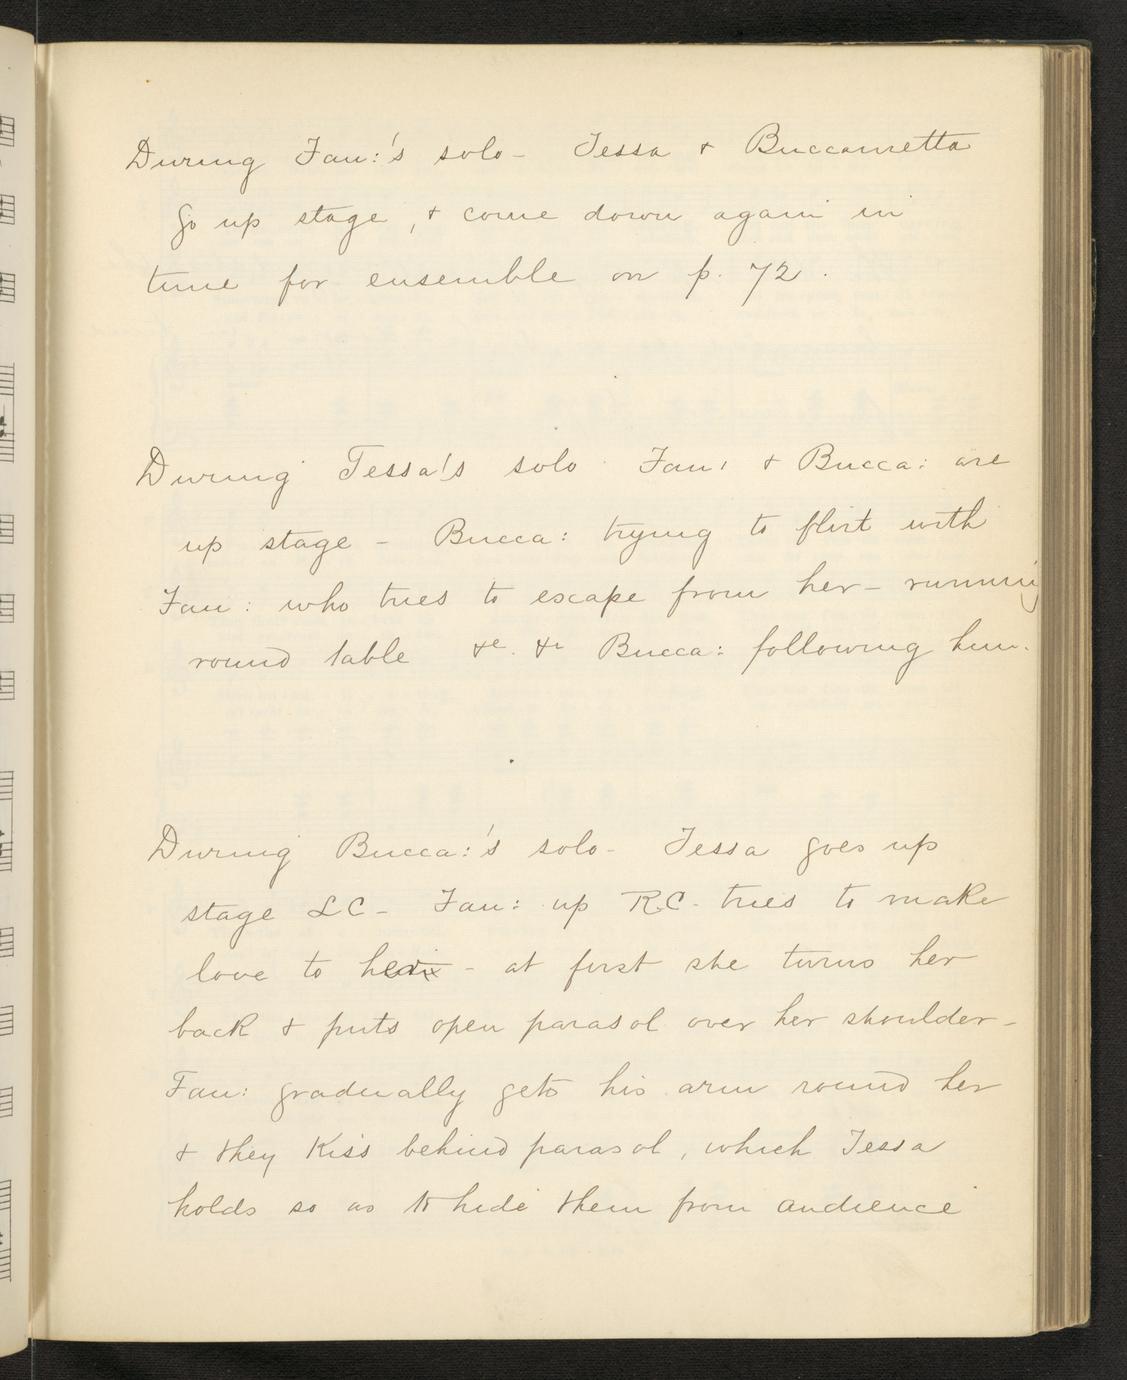 During Fau:'s solo - Tessa & Buccametta
go up stage, & come down again in
time for ensemble on p. 72.
During Tessa's solo Fau: & Bucca: are
up stage - Bucca: trying to flirt with
Fau: who tries to escape from her - running
round table &c. &c Bucca: following him.
During Bucca:'s solo - Tessa goes up
stage LC - Fau: up RC - tries to make
love to her - at first she turns her
back & puts open parasol over her shoulder -
Fau: gradually gets his arm round her
& they Kiss behind parasol, which Tessa
holds so as to hide them from audience